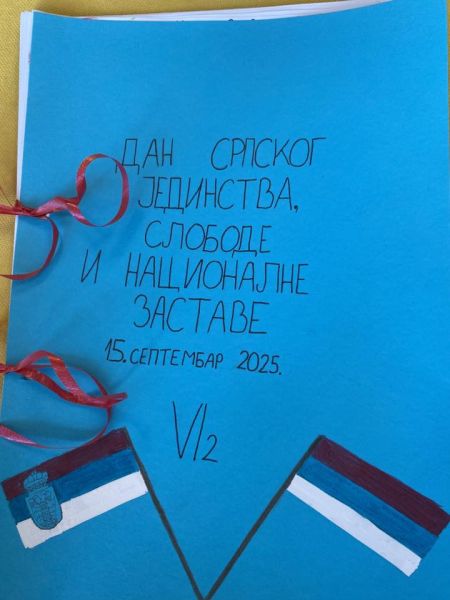 ДАН СРПСКОГ
ЈЕДИНСТВА,
СЛОБОДЕ
И НАЦИОНАЛНЕ
ЗАСТАВЕ
15. СЕПТЕМБАР 2025.
VI2